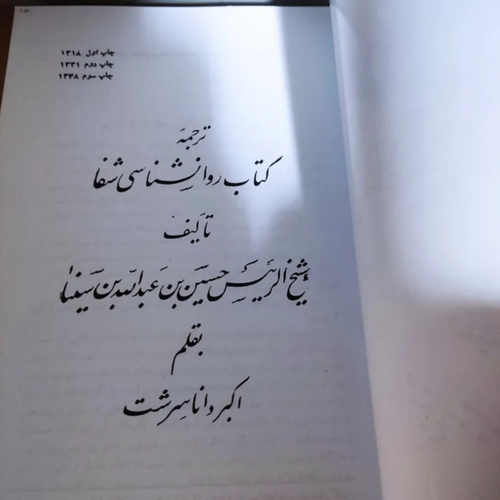 چاپ اول ۱۳۱۸
چاپ دوم ۱۳۳۱
چاپ سوم ۱۳۴۸
ترجمهٔ
کتاب روانشناسی شفا
تألیف
شیخ الرئیس حسین بن عبدالله بن سینا
بقلم
اکبر داناسرشت